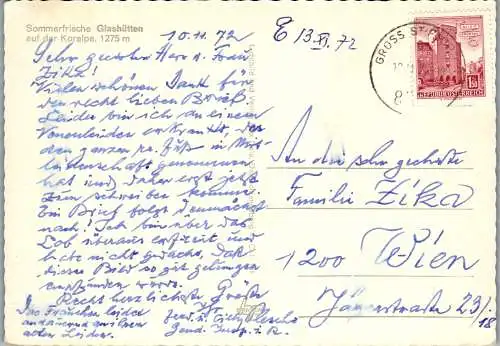 Sommerfrische Glashütten
auf der Koralpe, 1275 m
10.11.72
E 13.XI.72
GROSS ST.
REPUBLIK ÖSTERREICH
Sehr geehrter Herr u. Frau
Zika!
Vielen schönen Dank für
den recht lieben Brief.
Leider bin ich an einem
Venenleiden erkrankt, das
den ganzen re. Fuß in Mit-
leidenschaft genommen
hat und daher erst jetzt
zum schreiben komme.
Ein Brief folgt demnächst
nach! Ich bin über das
Lob überaus erfreut und
habe nicht gedacht, daß
dieses Bild so gut gelungen
empfunden werde.
Recht herzlichste Grüße
Fred. u. Cilly
Gend. Insp. i. R.
An die sehr geehrte
Familie Zika
1200 Wien
Jägerstraße 23/
18